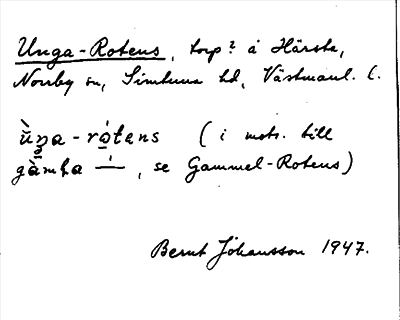 Unga-Rotens, torp? å Härsta,
Norrby sn, Simtuna hd, Västmanl. l.
ùŋa-rótens (i mots. till
gàmḷa —́—, se Gammel-Rotens)
Bernt Johansson 1947.